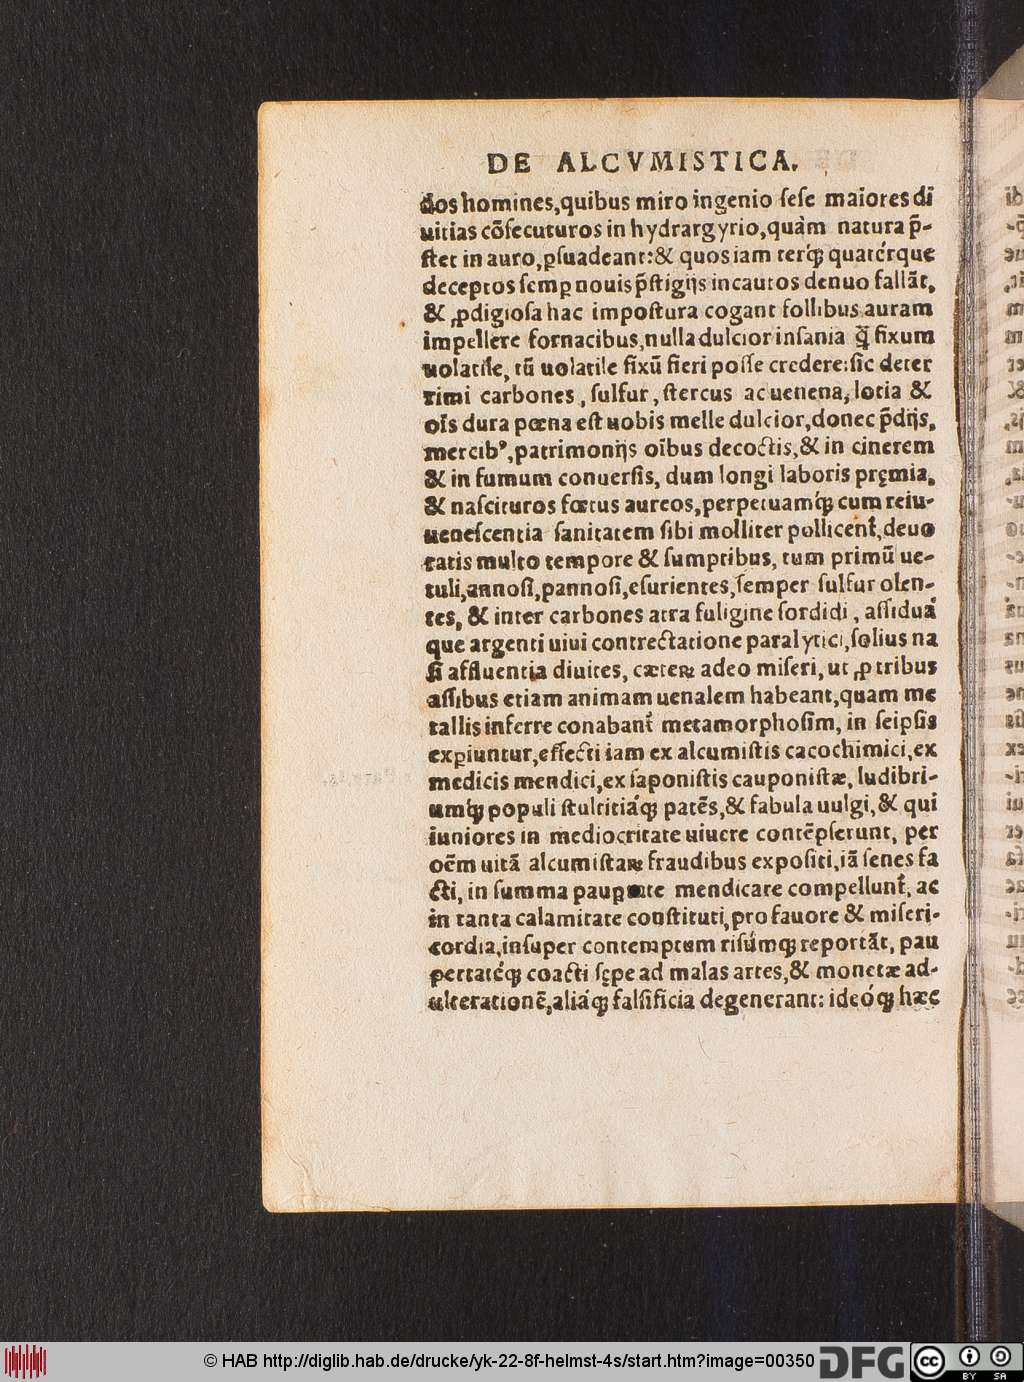 DE ALCVMISTICA.
dos homines, quibus miro ingenio ſeſe maiores di
uitias cõſecuturos in hydrargyrio, quàm natura p̃-
ſtet in auro, ꝑſuadeant: & quos iam terq́ꝫ quatérque
deceptos ſemꝑ nouis p̃ſtigijs incautos denuo fallãt,
& ꝓdigioſa hac impoſtura cogant follibus auram
impellere fornacibus, nulla dulcior inſania q̃ fixum
uolatile, tũ uolatile fixũ fieri poſſe credere: ſic deter
rimi carbones, ſulfur, ſtercus ac uenena, lotia &
oĩs dura pœna eſt uobis melle dulcior, donec p̃dijs,
mercibꝰ, patrimonijs oĩbus decoctis, & in cinerem
& in fumum conuerſis, dum longi laboris pręmia,
& naſcituros fœtus aureos, perpetuamq́ꝫ cum reiu-
ueneſcentia ſanitatem ſibi molliter pollicent᷑, deuo
ratis multo tempore & ſumptibus, tum primũ ue-
tuli, annoſi, pannoſi, eſurientes, ſemper ſulfur olen-
tes, & inter carbones atra fuligine ſordidi, aſſiduá
que argenti uiui contrectatione paralytici, ſolius na
ſi affluentia diuites, cæteꝝ adeo miſeri, ut ꝓ tribus
aſſibus etiam animam uenalem habeant, quam me
tallis inferre conabant᷑ metamorphoſim, in ſeipſis
exꝑiuntur, effecti iam ex alcumiſtis cacochimici, ex
medicis mendici, ex ſaponiſtis cauponiſtæ, ludibri-
umq́ꝫ populi ſtultitiáqꝫ patẽs, & fabula uulgi, & qui
iuniores in mediocritate uiuere contẽpſerunt, per
oẽm uitã alcumiſtaꝝ fraudibus expoſiti, iã ſenes fa
cti, in ſumma pauꝑtate mendicare compellunt᷑, ac
in tanta calamitate conſtituti, pro fauore & miſeri-
cordia, inſuper contemptum riſúmqꝫ reportãt, pau
pertatéqꝫ coacti ſępe ad malas artes, & monetæ ad-
ulterationẽ, aliáqꝫ falſificia degenerant: ideóqꝫ hæc
© HAB http://diglib.hab.de/drucke/yk-22-8f-helmst-4s/start.htm?image=00350
DFG
cc
BY SA